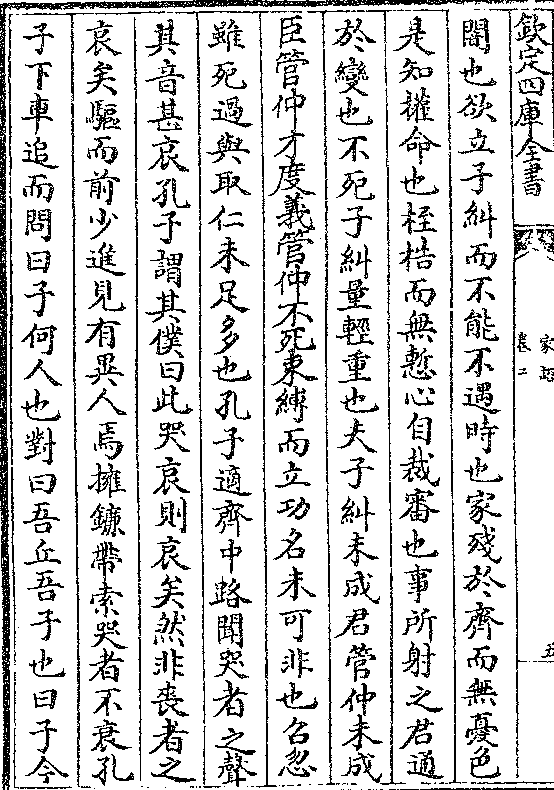 欽定四庫全書
家語
卷二
五
闇也欲立子糾而不能不遇時也家殘於齊而無憂色
是知權命也桎梏而無慙心自裁審也事所射之君通
於變也不死子糾量輕重也夫子糾未成君管仲未成
臣管仲才度義管仲不死束縛而立功名未可非也召忽
雖死過與取仁未足多也孔子適齊中路聞哭者之聲
其音甚哀孔子謂其僕曰此哭哀則哀矣然非喪者之
哀矣驅而前少進見有異人焉擁鐮帶索哭者不衰孔
子下車追而問曰子何人也對曰吾丘吾子也曰子今